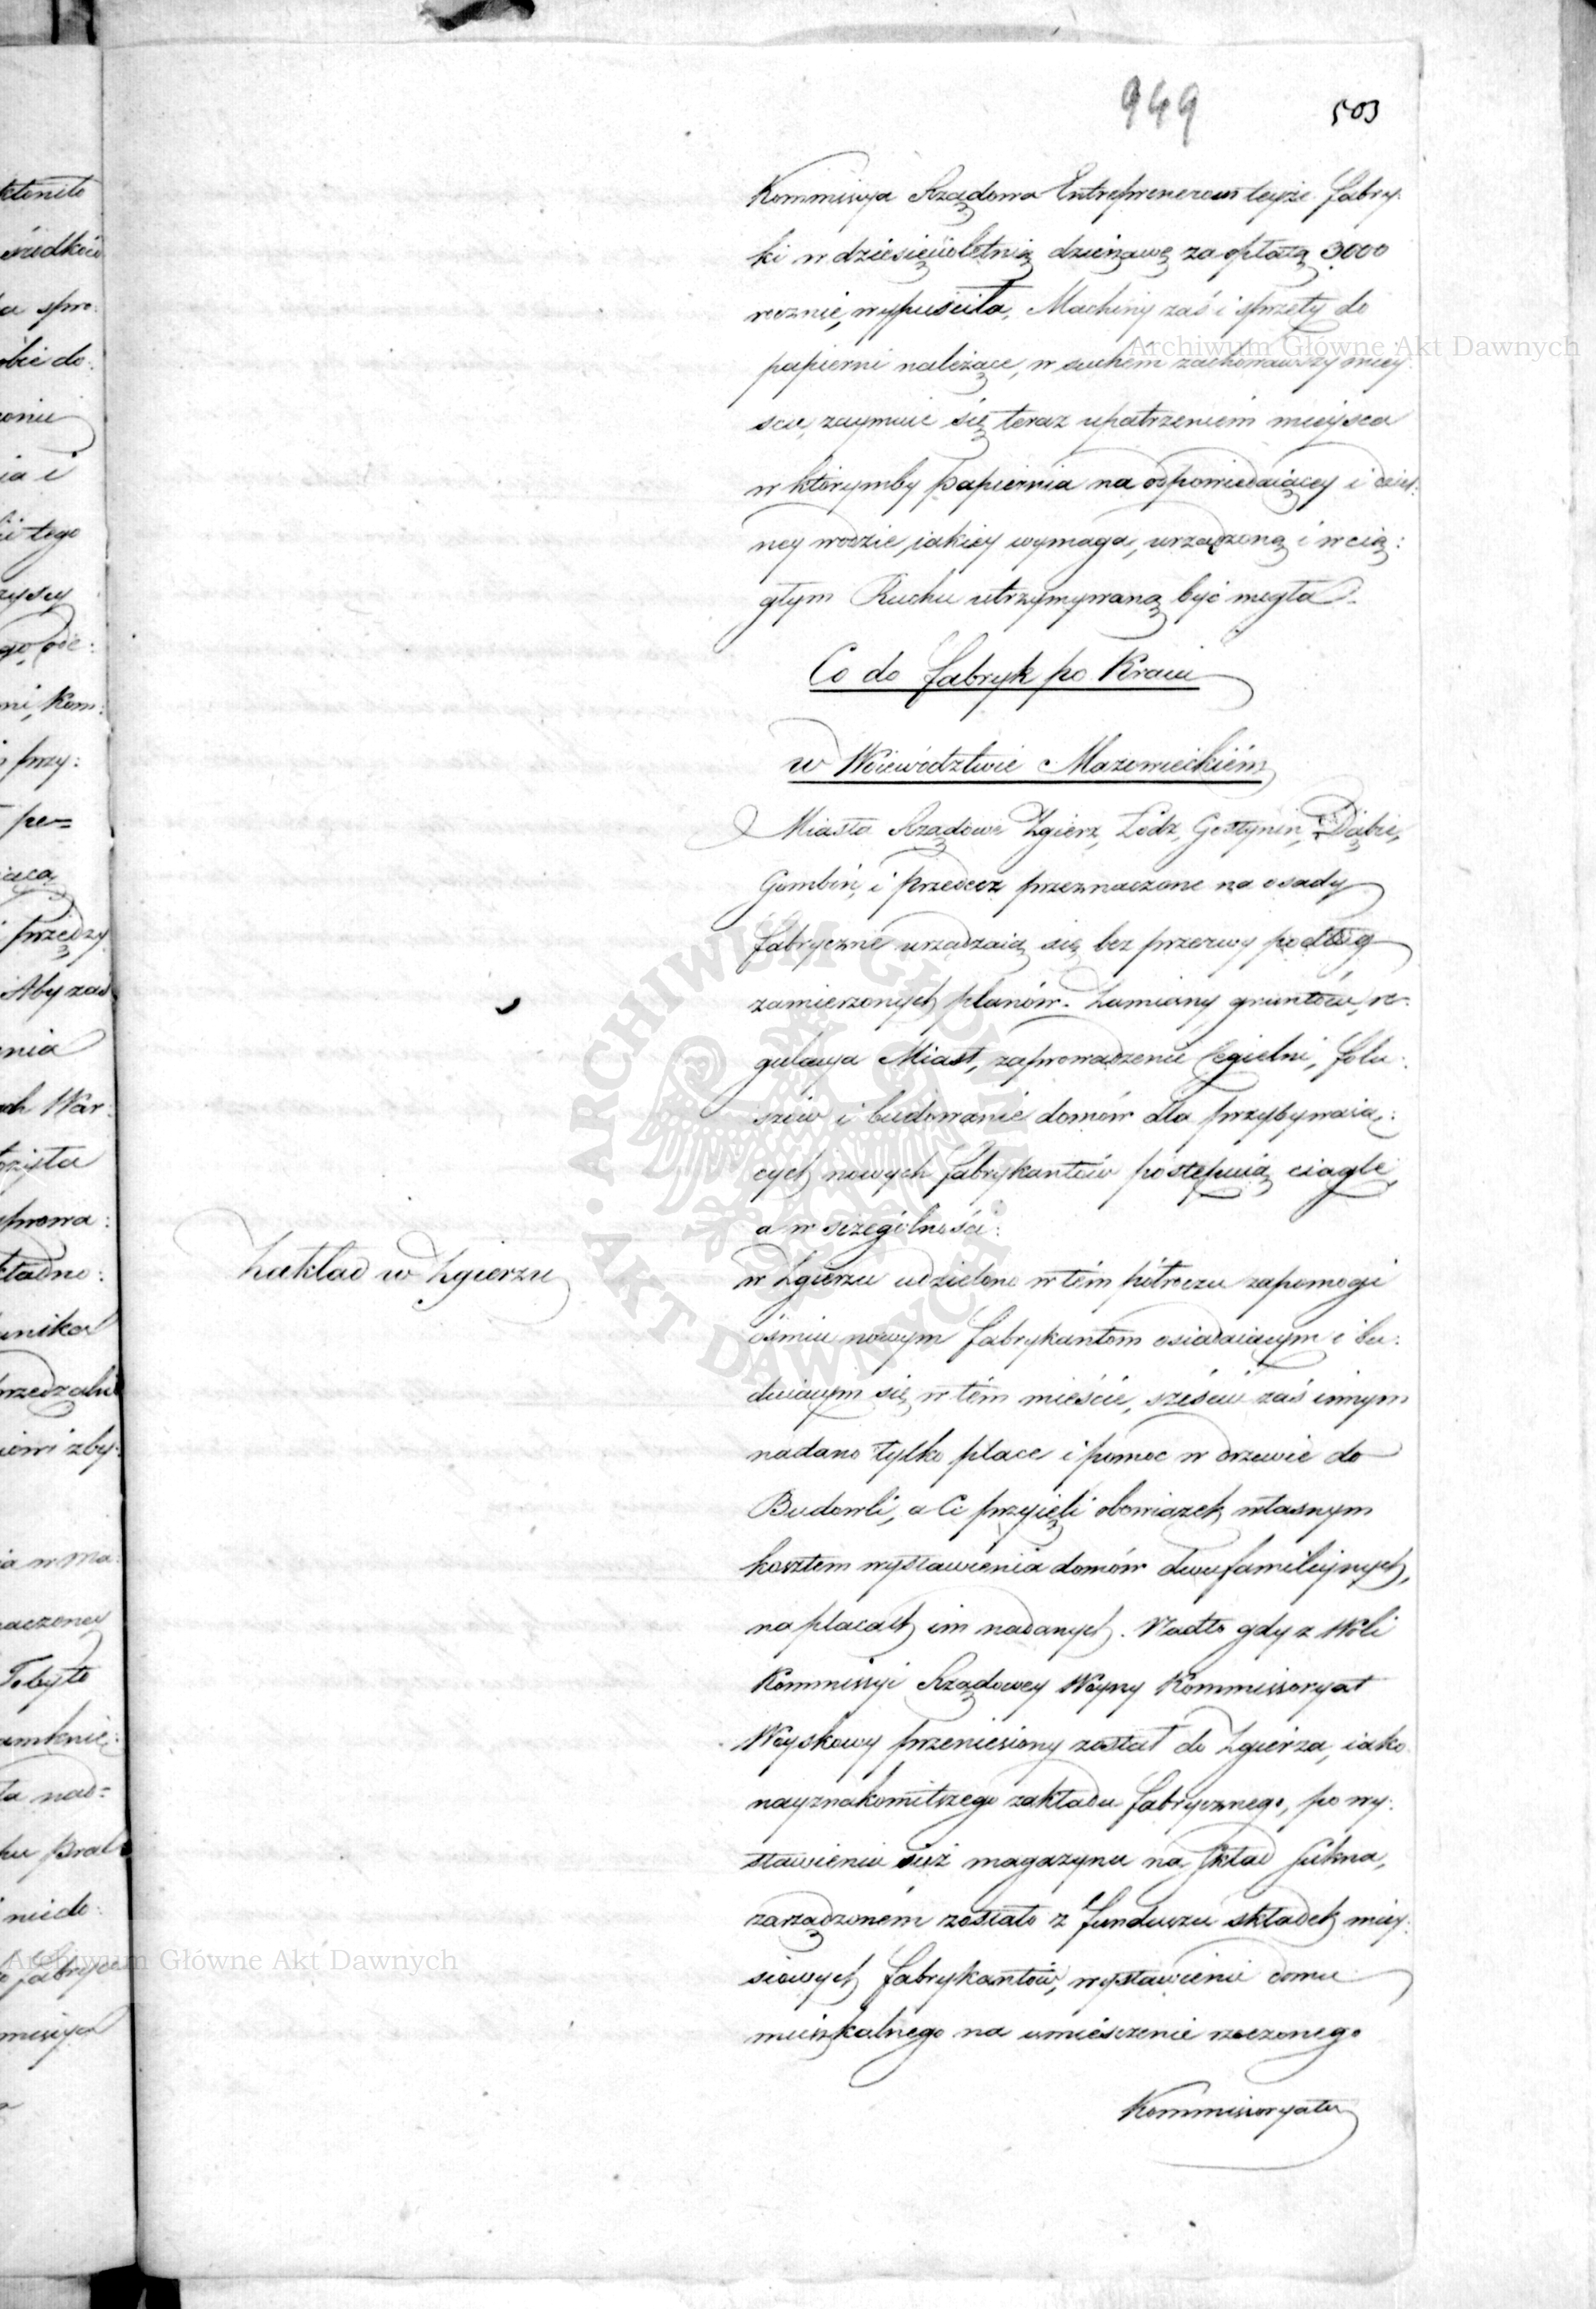 949
503
Kommissya Rządowa Entreprenerom teyże fabry:
ki w dziesięcioletnią dzierżawę za opłatą 3000
rocznie, wypuściła, Machiny zaś i sprzęty do
papierni należące, w suchem zachowawszy miey:
scu, zaymuie się teraz upatrzeniem mieysca
w którymby papiernia na odpowiedaiącey i dziel:
ney wodzie, iakiey wymaga, urządzoną i w cią:
głym Ruchu utrzymywaną być mogła.
Co do fabryk po Kraiu
w Woiewództwie Mazowieckiém
Miasta Rządowe Zgierz, Łódz, Gostynin, Dąbie,
Gombin, i Przedecz przeznaczone na osady
fabryczne urządzaią się bez przerwy podług
zamierzonych planów. Zamiany gruntów, re:
gulacya Miast, zaprowadzenie Cegielni, folu:
szów i budowanie domów dla przybywaią:
cych nowych fabrykantów postępuią ciągle,
a w szczególności:
Zakład w Zgierzu
w Zgierzu udzielono w tém półroczu zapomogi
ośmiu nowym fabrykantom osiadaiącym i bu:
duiącym się w tém mieście, sześciu zaś innym
nadano tylko place i pomoc w drzewie do
Budowli, a Ci przyięli obowiązek własnym
kosztem wystawienia domów dwufamiliynych,
na placach im nadanych. Nadto gdy z Woli
Kommissyi Rządowey Woyny Kommissoryat
Woyskowy przeniesiony został do Zgierza, iako
nayznakomitszego zakładu fabrycznego, po wy:
stawieniu iuż magazynu na skład sukna,
zarządzoném zostało z funduszu składek miey:
scowych fabrykantów, wystawienie domu
mieszkalnego na umieszczenie rzeczonego
Kommissoryatu
Archiwum Główne Akt Dawnych
Archiwum Główne Akt Dawnych
ARCHIWUM GŁÓWNE AKT DAWNYCH